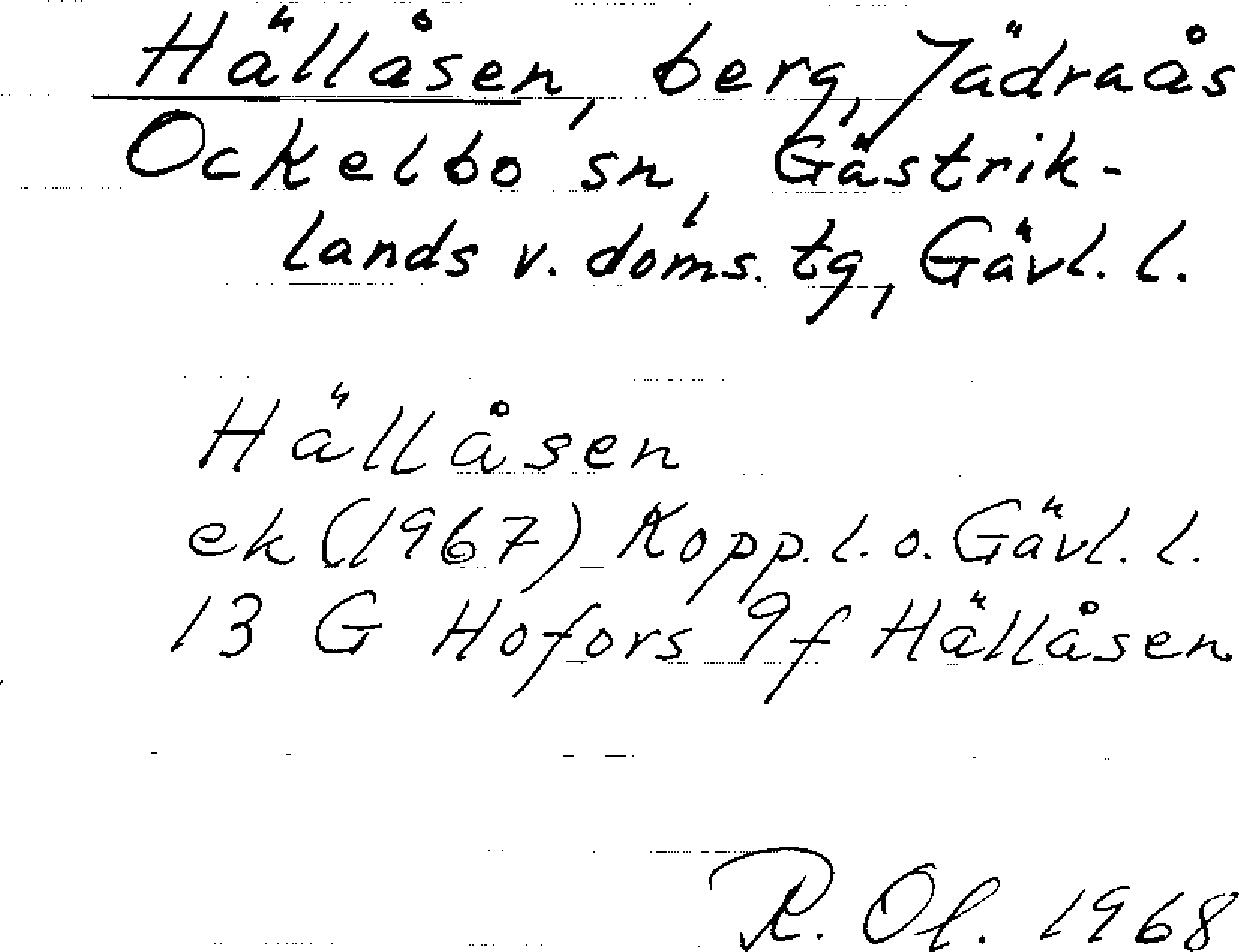 Hällåsen, berg, Jädraås
Ockelbo sn, Gästrik-
lands v. doms. tg, Gävl. l.
Hällåsen
ek (1967) Kopp. l. o. Gävl. l.
13 G Hofors 9f Hällåsen
R. Ol. 1968